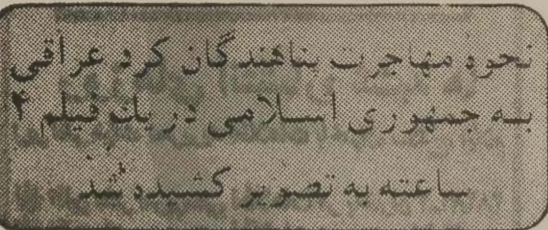 نحوه مهاجرت پناهندگان کرد عراقی
به جمهوری اسلامی در یک فیلم ۴
ساعته به تصویر کشیده شد